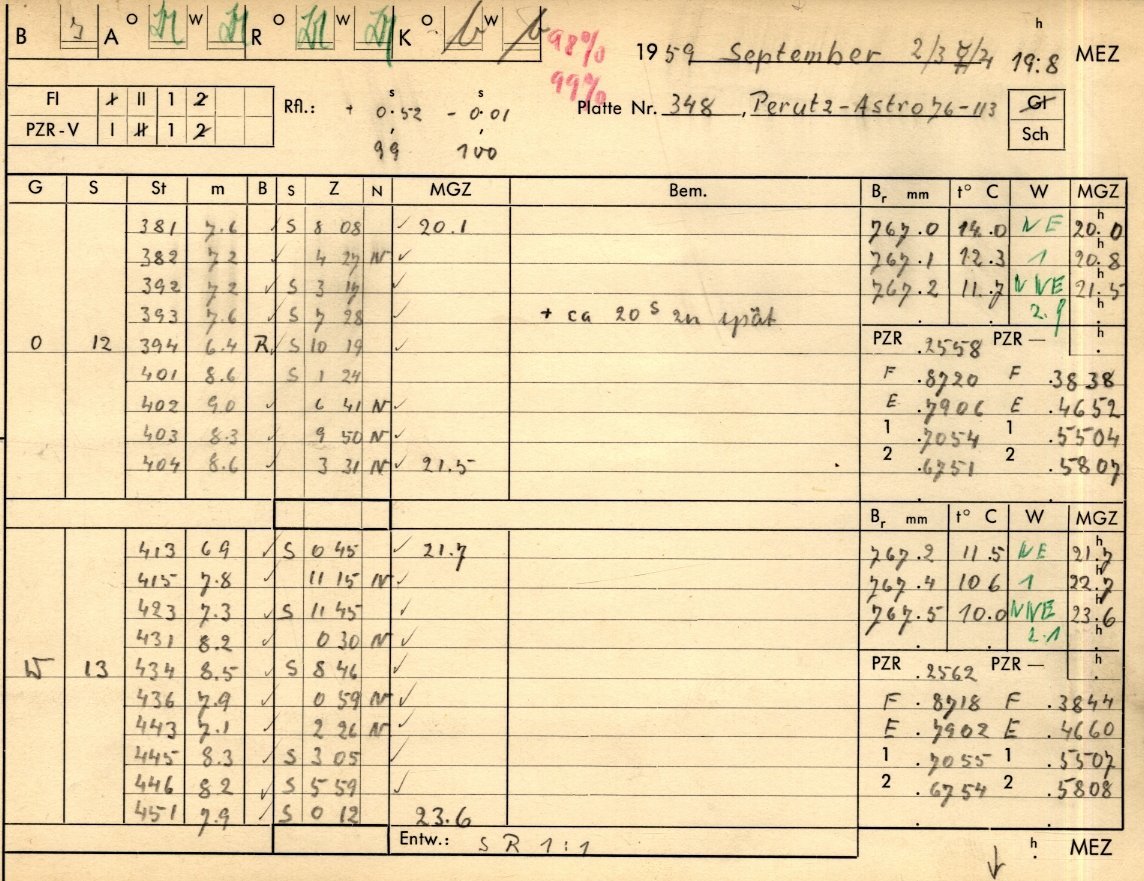 B A O W R O W K O W
98%
99%
1959 September 2/3 19:8 h MEZ
FI I II 1 2
PZR-V I II 1 2
Rfl.: + 0.52 s - 0.01 s
99 100
Platte Nr. 348, Perutz-Astro 76-113
Gl
Sch
G S St m B S Z N MGZ Bem. Br mm t° C W MGZ
381 7.6 ✓ S 8 08 ✓ 20.1 767.0 14.0 NE 20.0 h
382 7 2 ✓ 4 27 N ✓ 767.1 12.3 1 20.8 h
392 7 2 ✓ S 3 17 ✓ 767.2 11.7 NNE 21.5 h
393 7.6 ✓ S 7 28 ✓ + ca 20 s zu spät 2.9 h
O 12 394 6.4 R ✓ S 10 19 ✓ PZR .2558 PZR — h
401 8.6 S 1 24 F .8720 F .3838
402 9.0 ✓ 6 41 N ✓ E .7906 E .4652
403 8.3 ✓ 9 50 N ✓ 1 .7054 1 .5504
404 8.6 ✓ 3 31 N ✓ 21.5 2 .6751 2 .5807
Br mm t° C W MGZ
413 6 9 ✓ S 0 45 ✓ 21.7 767.2 11.5 NE 21.7 h
415 7.8 ✓ 11 15 N ✓ 767.4 10 6 1 22.7 h
423 7.3 ✓ S 11 45 ✓ 767.5 10.0 NNE 23.6 h
431 8.2 ✓ 0 30 N ✓ 2.1 h
W 13 434 8.5 ✓ S 8 46 ✓ PZR .2562 PZR — h
436 7.9 ✓ 0 59 N ✓ F .8718 F .3844
443 7.1 ✓ 2 26 N ✓ E .7902 E .4660
445 8.3 ✓ S 3 05 ✓ 1 .7055 1 .5507
446 8.2 ✓ S 5 59 ✓ 2 .6754 2 .5808
451 7.9 ✓ S 0 12 23.6
Entw.: S R 1:1 h MEZ